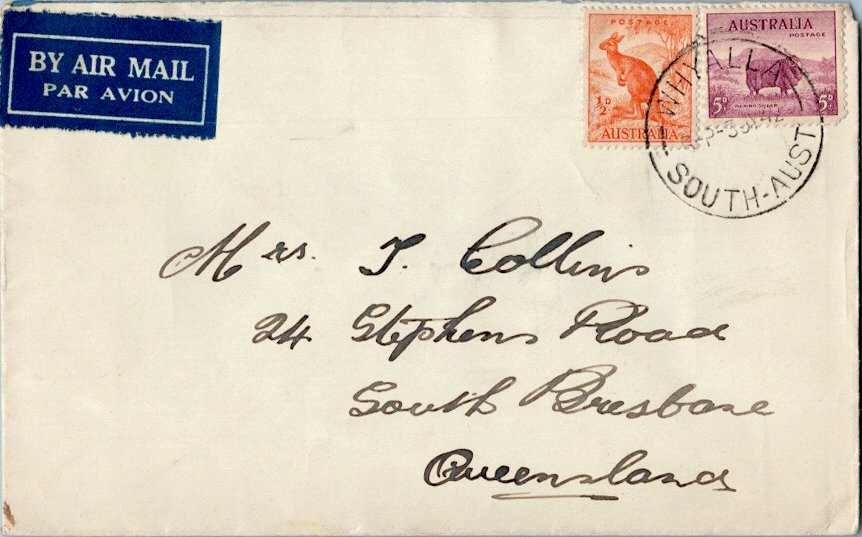 BY AIR MAIL
PAR AVION
POSTAGE
½D
AUSTRALIA
AUSTRALIA
POSTAGE
5D
MERINO SHEEP
5D
WHYALLA
SOUTH-AUST
Mrs. T. Collins
24 Stephens Road
South Bresbane
Queensland